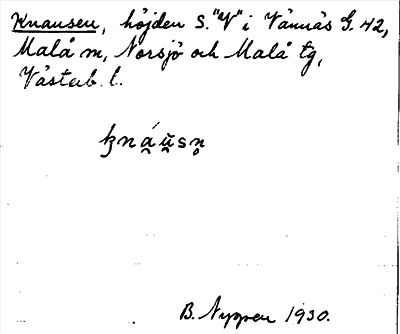 Knausen, höjden S. "V" i Vännäs G. 42,
Malå m, Norsjö och Malå tg,
Västerb. l.
B. Nyppen 1930.